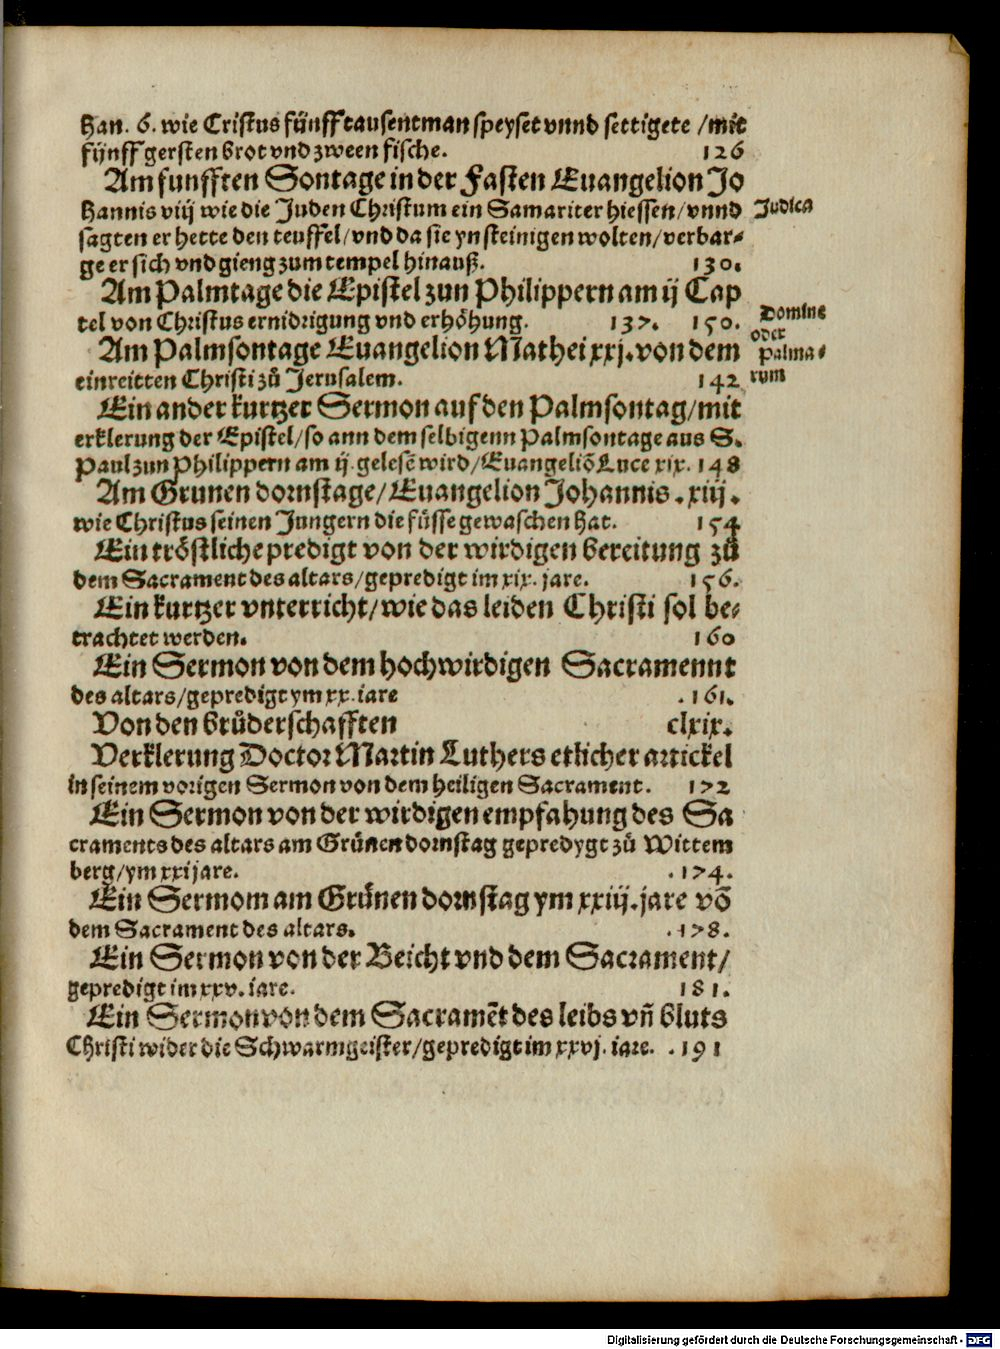 han. 6. wie Cristus fünff tausent man speyset vnnd settigete /mit
fünff gersten brot vnd zween fische. 126
Am funfften Sontage in der Fasten Euangelion Jo
hannis viij wie die Juden Christum ein Samariter hiessen/vnnd Judica
sagten er hette den teuffel/vnd da sie yn steinigen wolten/verbar⸗
ge er sich vnd gieng zum tempel hinauß. 130.
Am Palmtage die Epistel zun Philippern am ij Cap
tel von Christus ernidrigung vnd erhöhung. 137. 150. Domine
oder
Am Palmsontage Euangelion Mathei xxj. von dem Palma⸗
einreitten Christi zů Jerusalem. 142 rum
Ein ander kurtzer Sermon auf den Palmsontag/mit
erklerung der Epistel/so ann dem selbigenn Palmsontage aus S.
Paul zun Philippern am ij. gelesē wird/Euangeliō Luce xix. 148
Am Grunen dornstage/Euangelion Johannis .xiij.
wie Christus seinen Jungern die füsse gewaschen hat. 154
Ein tröstliche predigt von der wirdigen bereitung zů
dem Sacrament des altars/gepredigt im xix. jare. 156.
Ein kurtzer vnterricht/wie das leiden Christi sol be⸗
trachtet werden. 160
Ein Sermon von dem hochwirdigen Sacramennt
des altars/gepredigt ym xx. iare .161.
Von den brůderschafften clxix.
Verklerung Doctor Martin Luthers etlicher artickel
in seinem vorigen Sermon von dem heiligen Sacrament. 172
Ein Sermon von der wirdigen empfahung des Sa
craments des altars am Grünen dornstag gepredygt zů Wittem
berg/ym xxi jare. .174.
Ein Sermom am Grünen dornstag ym xxiij. jare vō
dem Sacrament des altars. .178.
Ein Sermon von der Beicht vnd dem Sacrament/
gepredigt im xxv. iare. 181.
Ein Sermon von dem Sacramēt des leibs vñ bluts
Christi wider die Schwarmgeister/gepredigt im xxvj. iare. .191
Digitalisierung gefördert durch die Deutsche Forschungsgemeinschaft - DFG